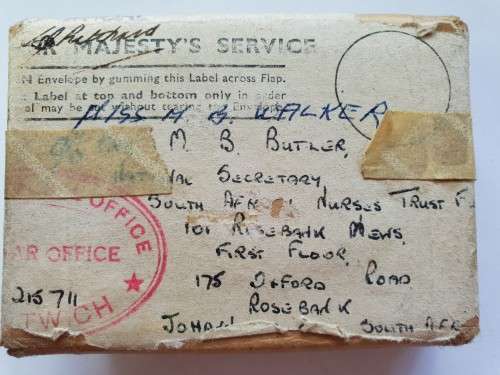 MAJESTY'S SERVICE
Envelope by gumming this Label across Flap.
Label at top and bottom only in order
may be without tearing the Envelope
MISS M. B. WALKER
M. B. BUTLER,
SECRETARY
SOUTH AFR NURSES TRUST F
101 ROSEBANK MEWS,
FIRST FLOOR,
175 OXFORD ROAD
ROSEBANK
JOHAN SOUTH AFR
OFFICE
AR OFFICE
215711
WICH